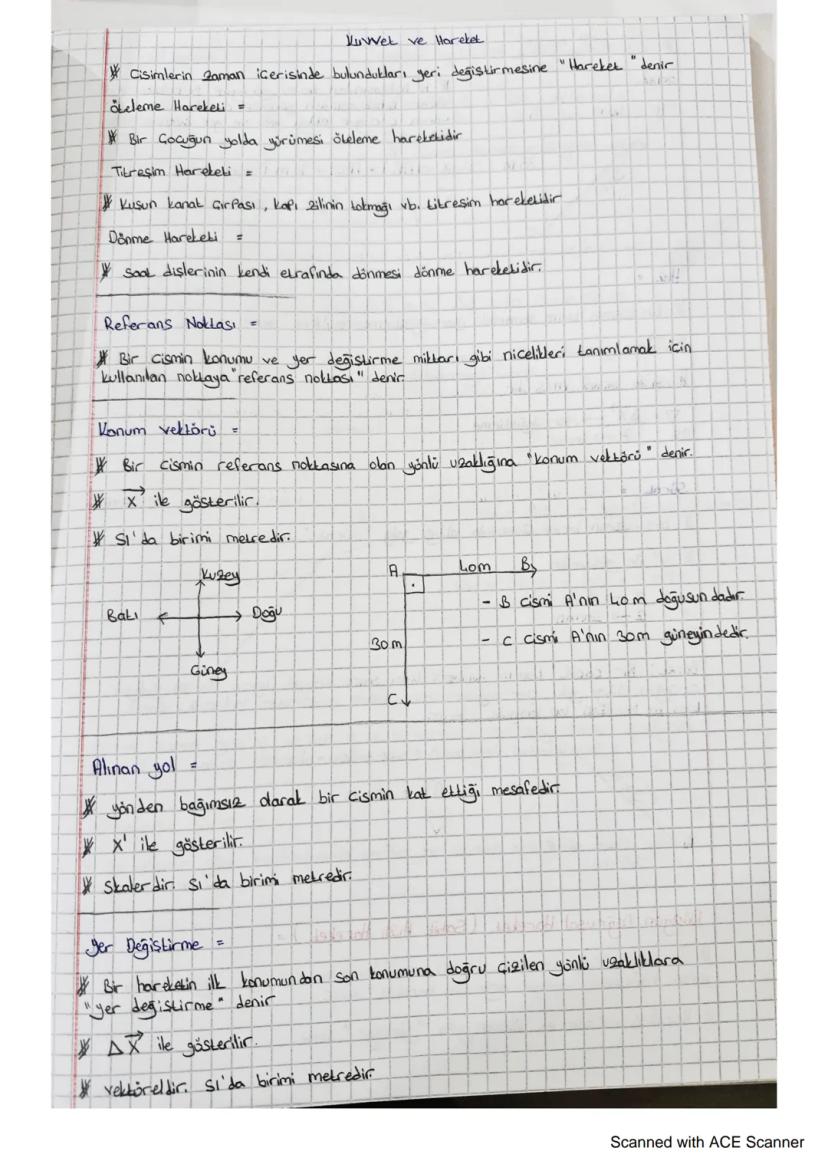 Kuvvet ve Hareket
* Cisimlerin zaman içerisinde bulundukları yeri değiştirmesine "Hareket" denir
Öteleme Hareketi =
* Bir Çocuğun yolda yürümesi öteleme hareketidir
Titreşim Hareketi =
* Kuşun kanat çırpası, kapı zilinin tokmağı vb. titreşim hareketidir
Dönme Hareketi =
* Saat dişlerinin kendi etrafında dönmesi dönme hareketidir.
Referans Noktası =
* Bir cismin konumu ve yer değiştirme miktarı gibi nicelikleri tanımlamak için
kullanılan noktaya "referans noktası" denir
Konum vektörü =
* Bir cismin referans noktasına olan yönlü uzaklığına "konum vektörü" denir.
* X⃗ ile gösterilir.
* SI'da birimi metredir.
Kuzey
Batı
Doğu
Güney
A 40m B
30m
C
- B cismi A'nın 40m doğusundadır.
- C cismi A'nın 30m güneyindedir.
Alınan yol =
* yönden bağımsız olarak bir cismin kat ettiği mesafedir
* X' ile gösterilir.
* Skalerdir. SI'da birimi metredir.
Yer Değiştirme =
* Bir hareketin ilk konumundan son konumuna doğru çizilen yönlü uzaklıklara
"yer değiştirme" denir
* ΔX⃗ ile gösterilir.
* vektöreldir. SI'da birimi metredir
Scanned with ACE Scanner